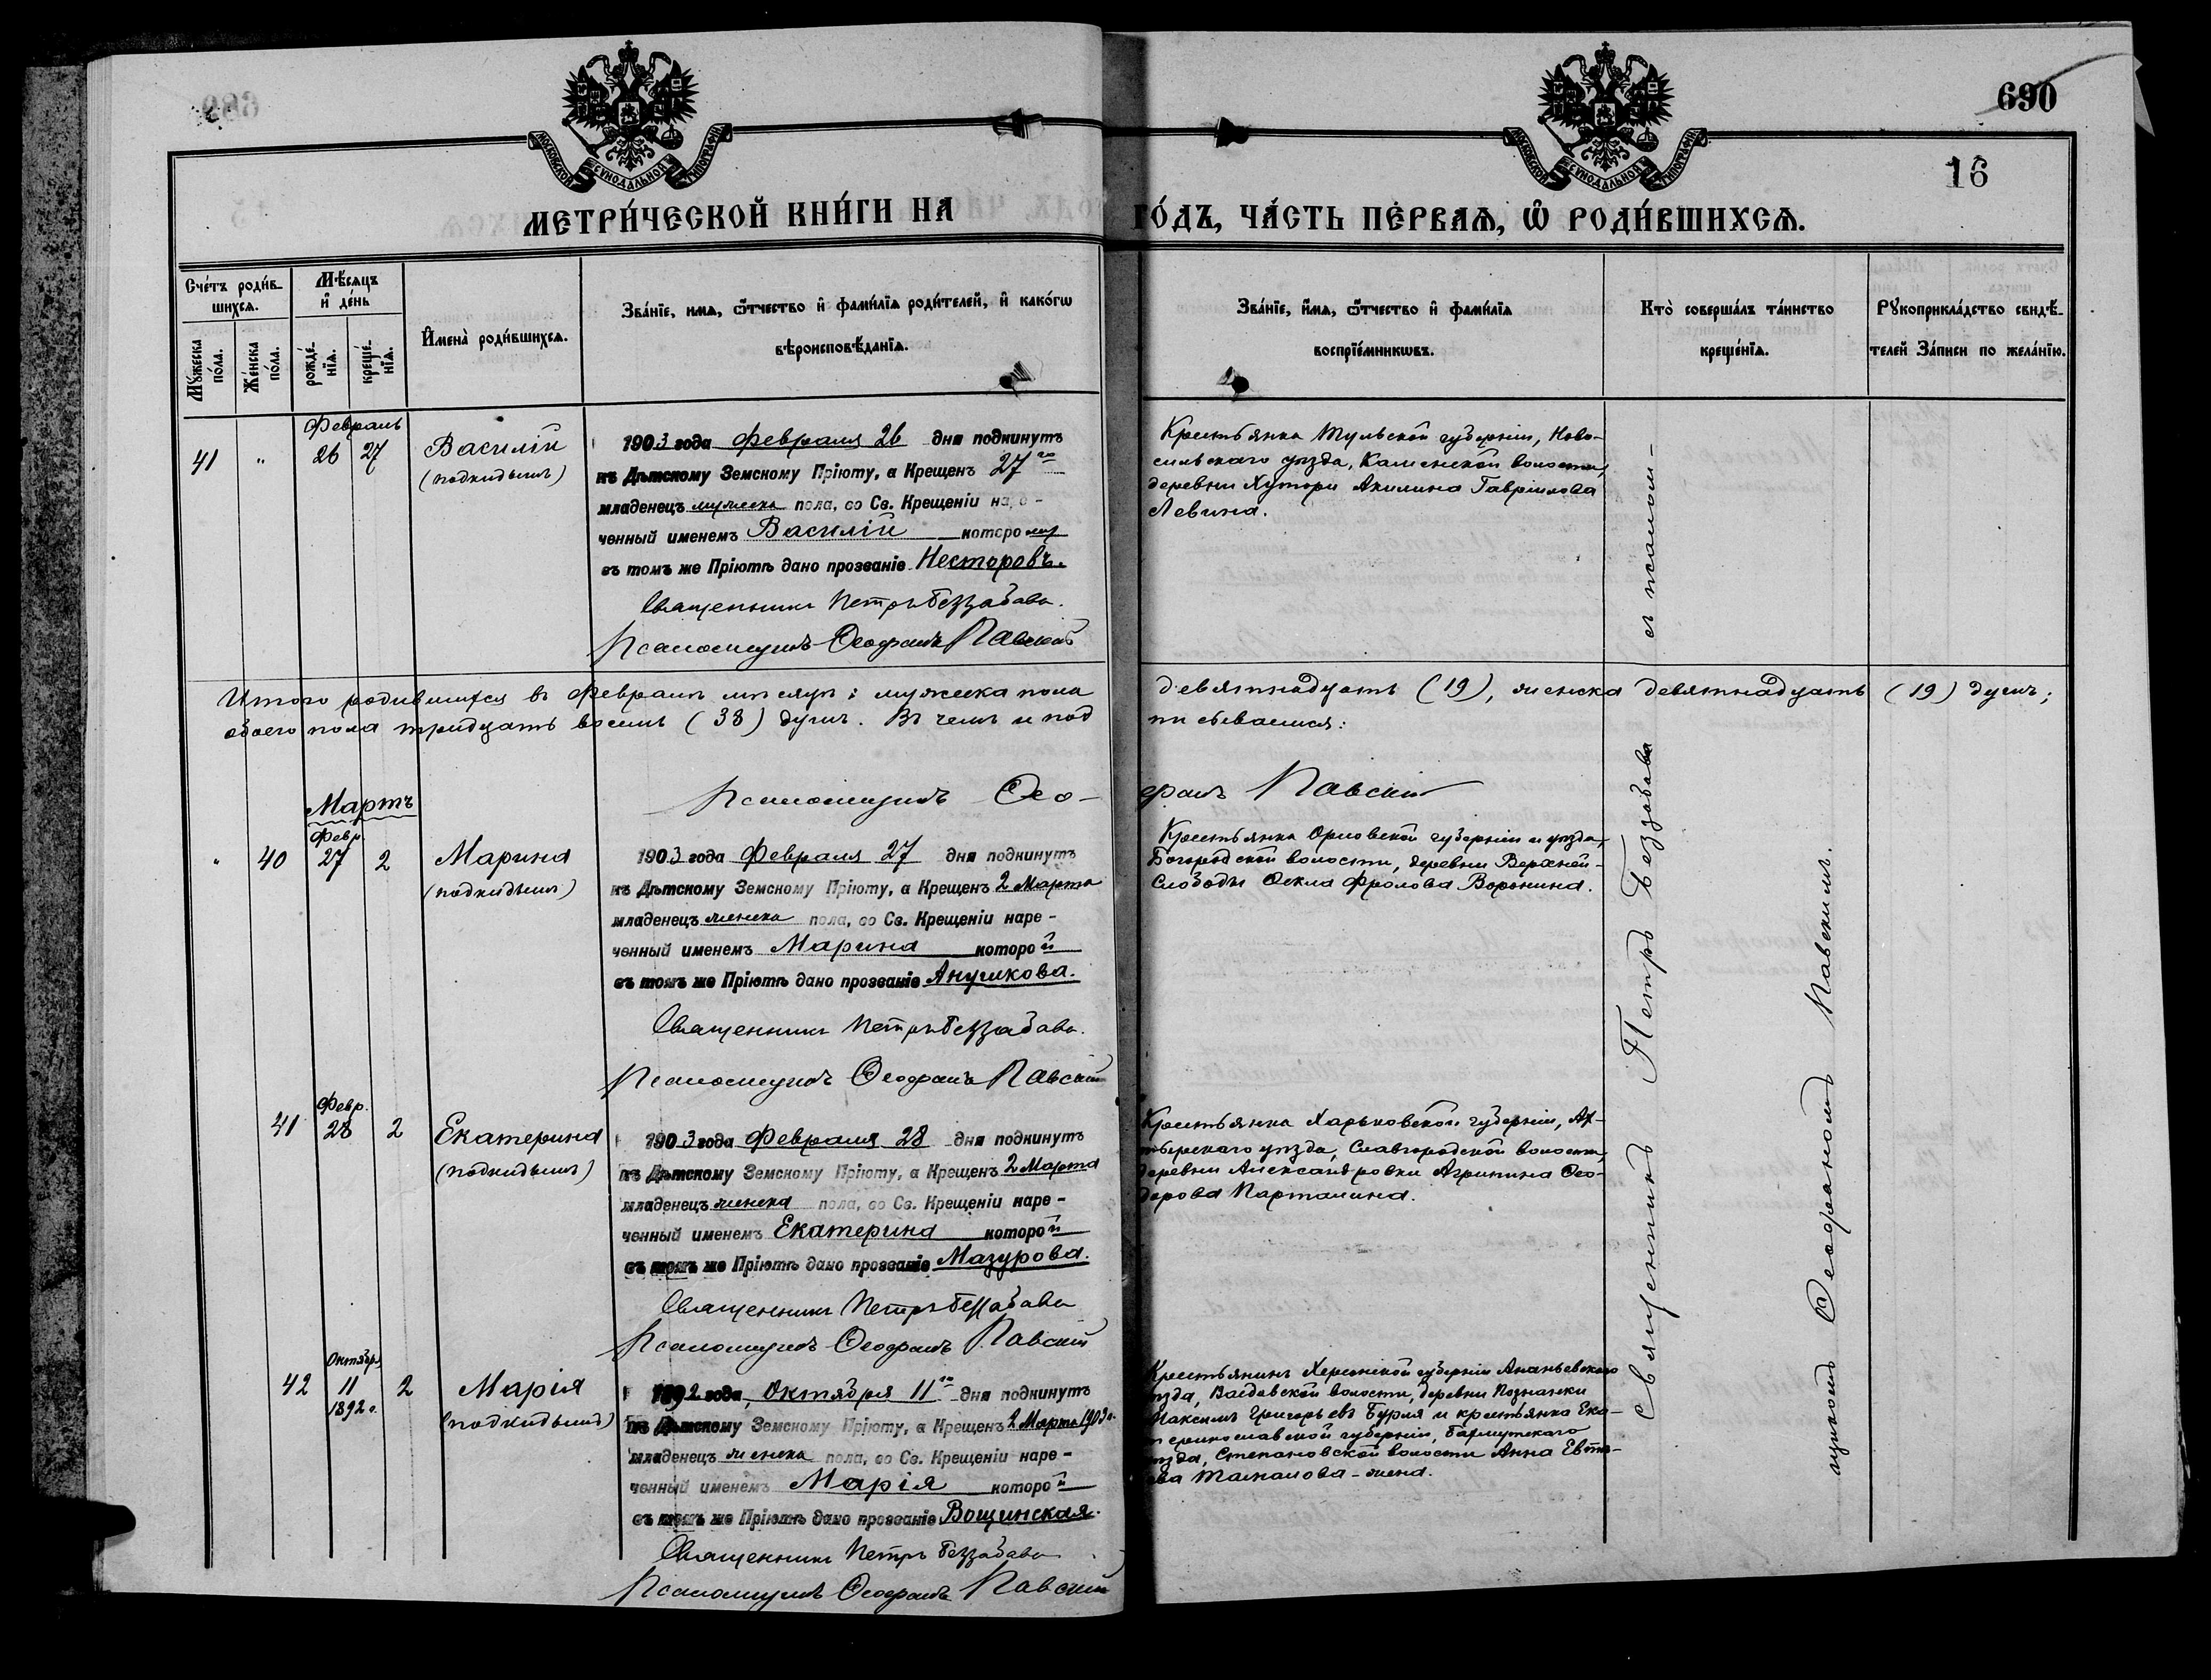 690
16
МОСКОВСКОЙ СѴНОДАЛЬНОЙ ТИПОГРАФІИ
МОСКОВСКОЙ СѴНОДАЛЬНОЙ ТИПОГРАФІИ
МЕТРИ́ЧЕСКОЙ КНИ́ГИ НА ГО́ДЪ, ЧА́СТЬ ПЕ́РВАѦ, Ѡ҆ РОДИ́ВШИХСѦ.
Сче́тъ роди́в-
шихсѧ.
Мꙋ́жеска по́ла.
Же́нска по́ла.
Мѣ́сѧцъ
и҆ де́нь
рожде́-нїѧ.
креще́-нїѧ.
И҆мена̀ роди́вшихсѧ.
Зва́нїе, и҆мѧ, ѻ҆́тчество и҆ фами́лїѧ роди́телей, и҆ како́гѡ
вѣроисповѣ́данїѧ.
Зва́нїе, и҆́мѧ, ѻ҆́тчество и҆ фами́лїѧ
воспрїе́мникѡвъ.
Кто̀ соверша́лъ та́инство
креще́нїѧ.
Рꙋкоприкла́дство свидѣ́-
телей за́писи по жела́нїю.
Февраль
41 " 26 27
Василій
(подкидышъ)
1903 года Февраля 26 дня подкинутъ
къ Дѣтскому Земскому Пріюту, а Крещенъ 27го
младенецъ мужеска пола, со Св. Крещеніи наре-
ченный именемъ Василій которому
въ томъ же Пріютѣ дано прозваніе Несторовъ.
Священникъ Петръ Беззабава.
Псаломщикъ Ѳеофанъ Павскій
Крестьянка Тульской губерніи, Ново-
сильскаго уѣзда, Каменской волости,
деревни Хутори Акилина Гавріилова
Левина.
Итого родившихся въ Февралѣ мѣсяцѣ: мужеска пола девятнадцать (19), женска девятнадцать (19) душъ;
обоего пола тридцать восемь (38) душъ. Въ чемъ и подписываемся:
Псаломщикъ Ѳеофанъ Павскій
Мартъ
Февр.
" 40 27 2
Марина
(подкидышъ)
1903 года Февраля 27 дня подкинутъ
къ Дѣтскому Земскому Пріюту, а Крещенъ 2 Марта
младенецъ женска пола, со Св. Крещеніи наре-
ченный именемъ Марина которой
въ томъ же Пріютѣ дано прозваніе Анушкова.
Священникъ Петръ Беззабава.
Псаломщикъ Ѳеофанъ Павскій
Крестьянка Орловской губерніи и уѣзда,
Богородской волости, деревни Верхней-
Слободы Ѳекла Фролова Воронина.
Февр.
41 28 2
Екатерина
(подкидышъ)
1903 года Февраля 28 дня подкинутъ
къ Дѣтскому Земскому Пріюту, а Крещенъ 2 Марта
младенецъ женска пола, со Св. Крещеніи наре-
ченный именемъ Екатерина которой
въ томъ же Пріютѣ дано прозваніе Мазурова.
Священникъ Петръ Беззабава
Псаломщикъ Ѳеофанъ Павскій
Крестьянка Харьковской губерніи, Ах-
тырскаго уѣзда, Славгородской волости
деревни Александровки Агрипина Ѳео-
дорова Парталина.
Октября
42 11 2
1892 г.
Марія
(подкидышъ)
1892 года, Октября 11го дня подкинутъ
къ Дѣтскому Земскому Пріюту, а Крещенъ 2 Марта 1903 г.
младенецъ женска пола, со Св. Крещеніи наре-
ченный именемъ Марія которой
въ томъ же Пріютѣ дано прозваніе Вощинская.
Священникъ Петръ Беззабава
Псаломщикъ Ѳеофанъ Павскій
Крестьянинъ Херсонской губерніи Ананьевскаго
уѣзда, волости, деревни Познанки
Максимъ Григорьевъ Бурля и крестьянка Ека-
теринославской губерніи, Бахмутскаго
уѣзда, Степановской волости Анна
жена.
Священникъ Петръ Беззабава съ псалом-
щикомъ Ѳеофаномъ Павскимъ.